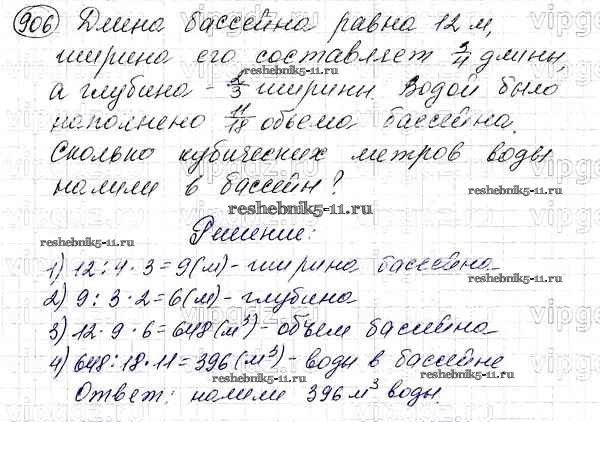 906) Длина бассейна равна 12 м,
ширина его составляет 3/4 длины,
а глубина - 2/3 ширины. Водой было
наполнено 11/18 объема бассейна.
Сколько кубических метров воды
налили в бассейн?
Решение:
1) 12 : 4 · 3 = 9 (м) - ширина бассейна
2) 9 : 3 · 2 = 6 (м) - глубина
3) 12 · 9 · 6 = 648 (м³) - объем бассейна
4) 648 : 18 · 11 = 396 (м³) - воды в бассейне
Ответ: налили 396 м³ воды.
reshebnik5-11.ru
reshebnik5-11.ru
reshebnik5-11.ru
reshebnik5-11.ru
reshebnik5-11.ru
reshebnik5-11.ru